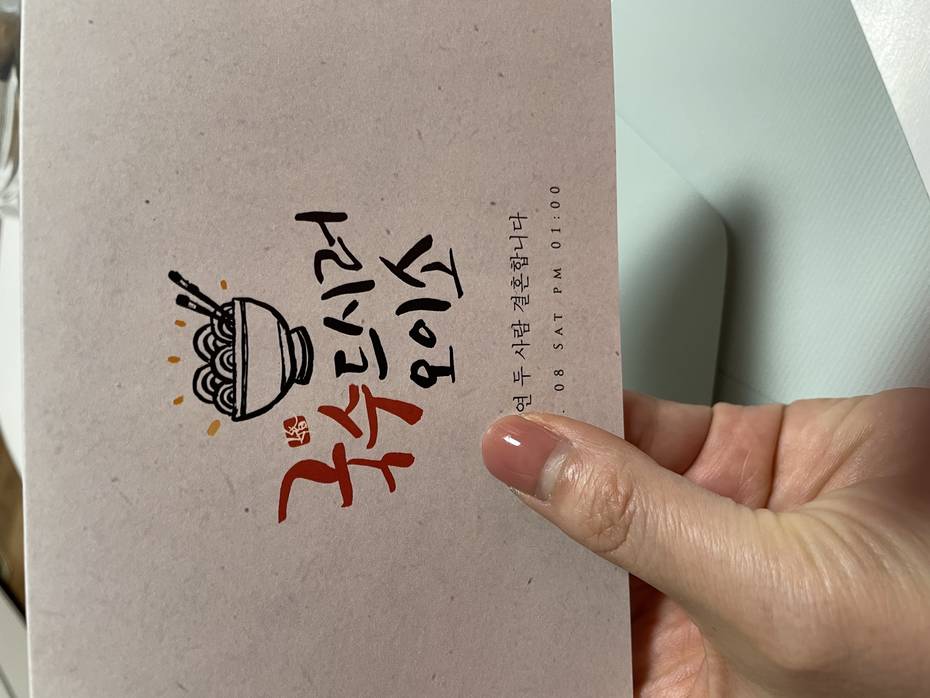 국수 드시러
오이소
연 두 사람 결혼합니다
. 08 SAT PM 01:00